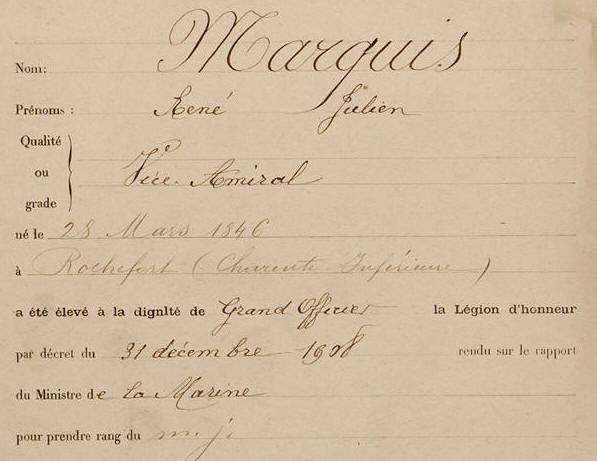 Nom: Marquis
Prénoms : René Julien
Qualité
ou
grade
Vice-Amiral
né le 28 Mars 1846
à Rochefort (Charente Inférieure)
a été élevé à la dignité de Grand Officier la Légion d'honneur
par décret du 31 décembre 1908 rendu sur le rapport
du Ministre de la Marine
pour prendre rang du m. j.